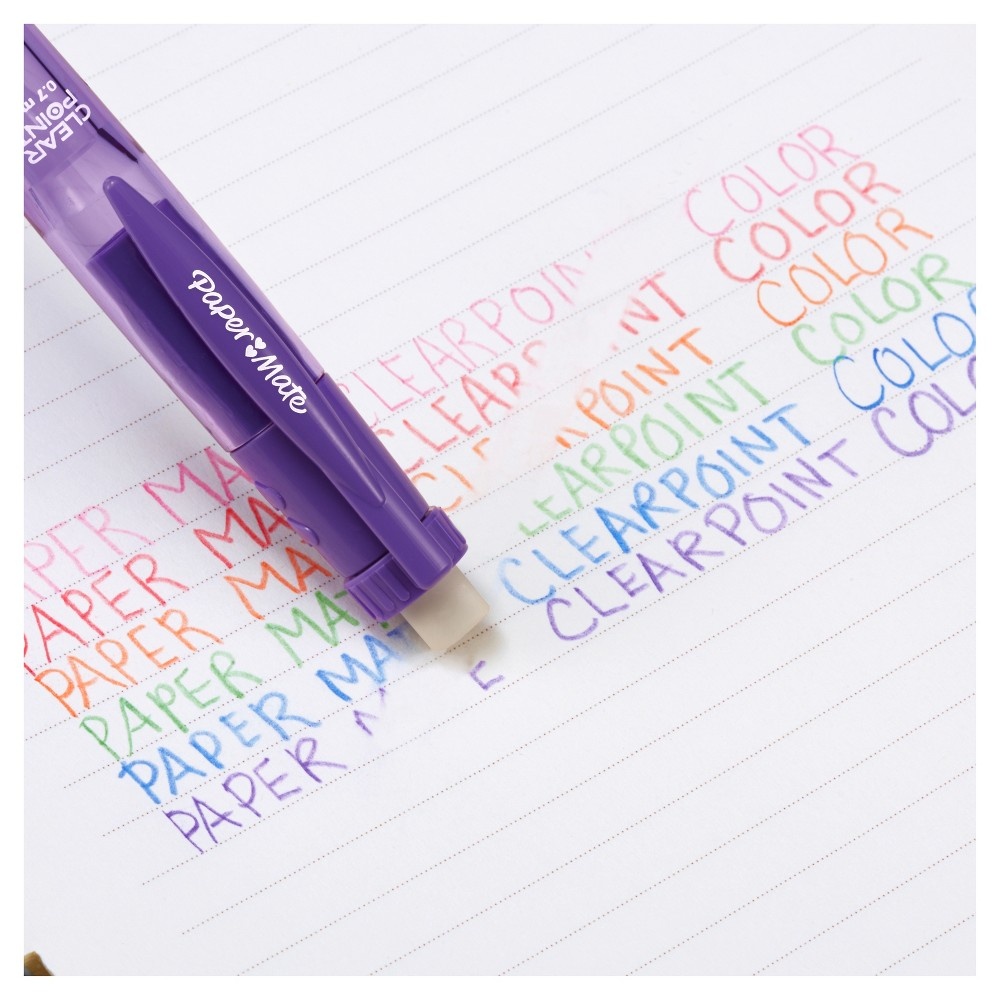 CLEAR
POINT
0.7 m
Paper Mate
PER MA CLEARPOIN COLOR
PAPER MA CLEAR NT COLOR
PAPER MA CL POINT COLOR
PAPER MAT LEARPOINT COLOR
PAPER MAT CLEARPOINT COLO
PAPER E CLEARPOINT COL